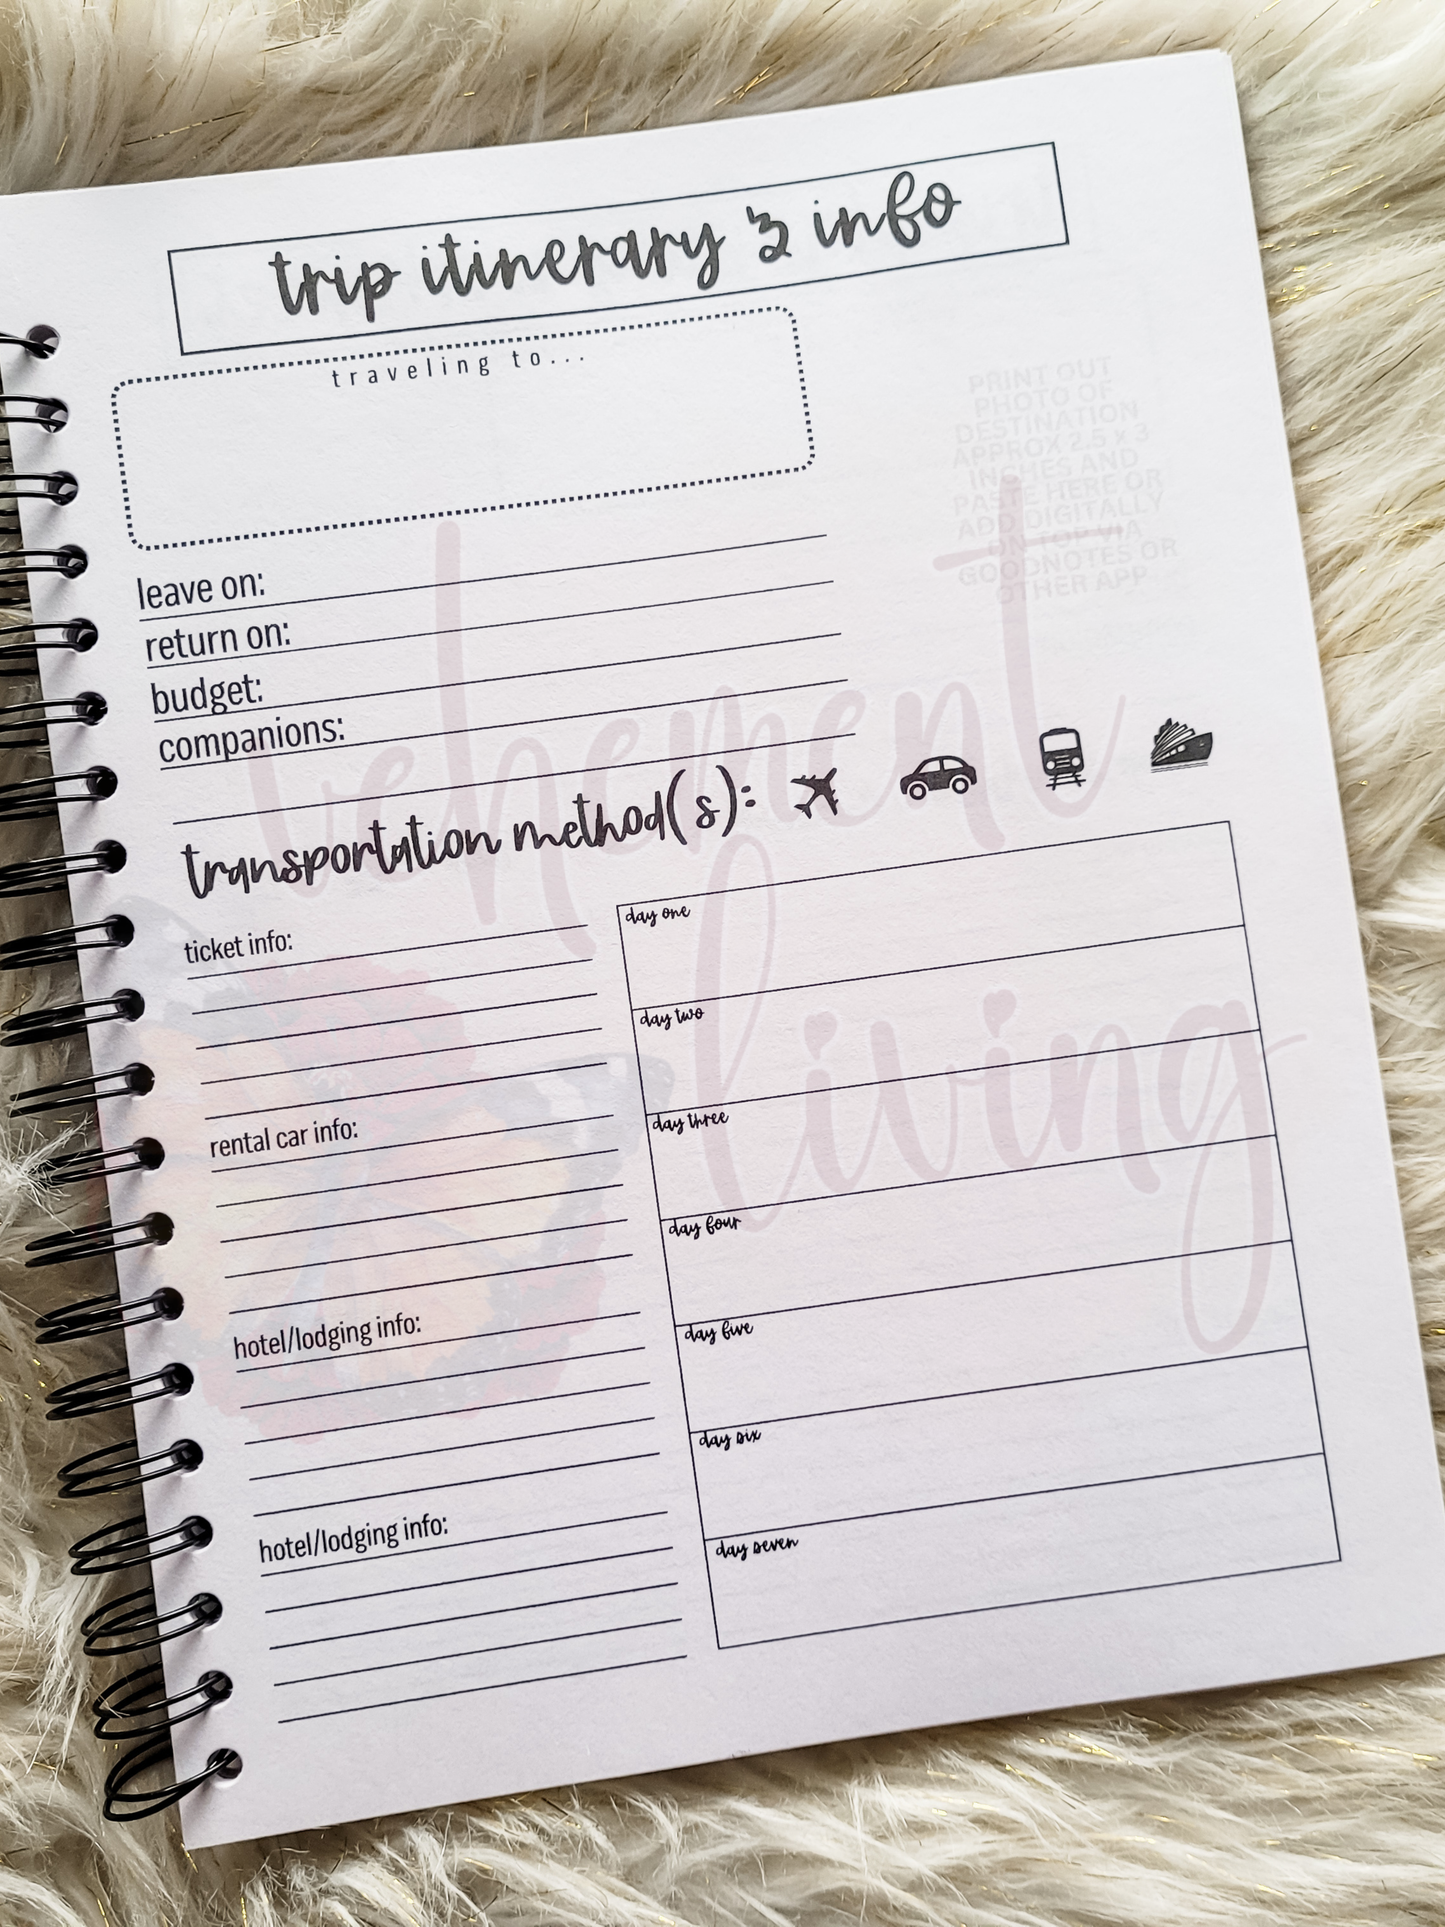 trip itinerary & info
traveling to...
PRINT OUT
PHOTO OF
DESTINATION
APPROX 2.5 x 3
INCHES AND
PASTE HERE OR
ADD DIGITALLY
ON TOP VIA
GOODNOTES OR
OTHER APP
leave on:
return on:
budget:
companions:
transportation method(s):
ticket info:
rental car info:
hotel/lodging info:
hotel/lodging info:
day one
day two
day three
day four
day five
day six
day seven
vehement
living